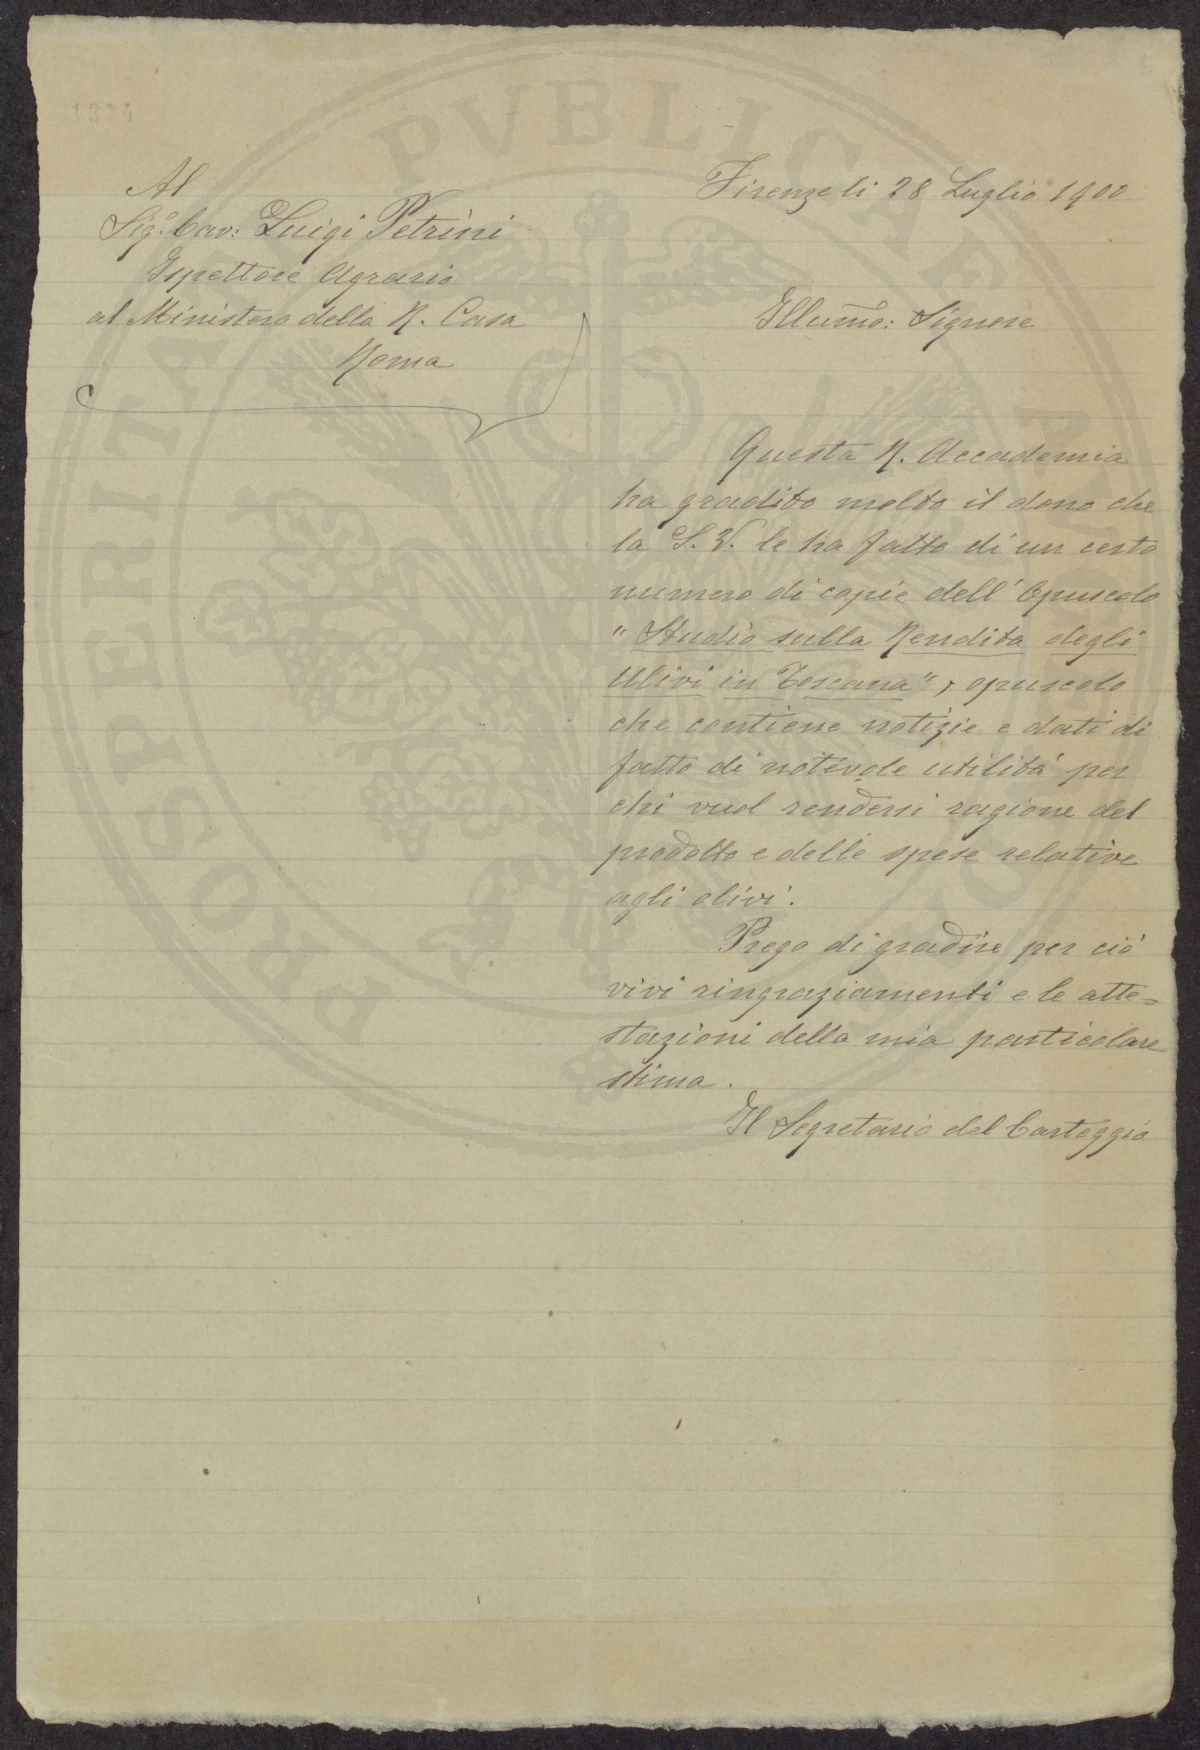 1374
Al
Sig.r Cav: Luigi Petrini
Ispettore Agrario
al Ministero della R. Casa
Roma
Firenze li 28 Luglio 1900
Illumo: Signore
Questa R. Accademia
ha gradito molto il dono che
la S. V. le ha fatto di un certo
numero di copie dell' Opuscolo
"Studio sulla Rendita degli
Ulivi in Toscana", opuscolo
che contiene notizie e dati di
fatto di notevole utilità per
chi vuol rendersi ragione del
prodotto e delle spese relative
agli olivi.
Prego di gradire per ciò
vivi ringraziamenti e le atte=
stazioni della mia particolare
stima.
Il Segretario del Carteggio
PROSPERITATI PVBLICAE AVGENDAE